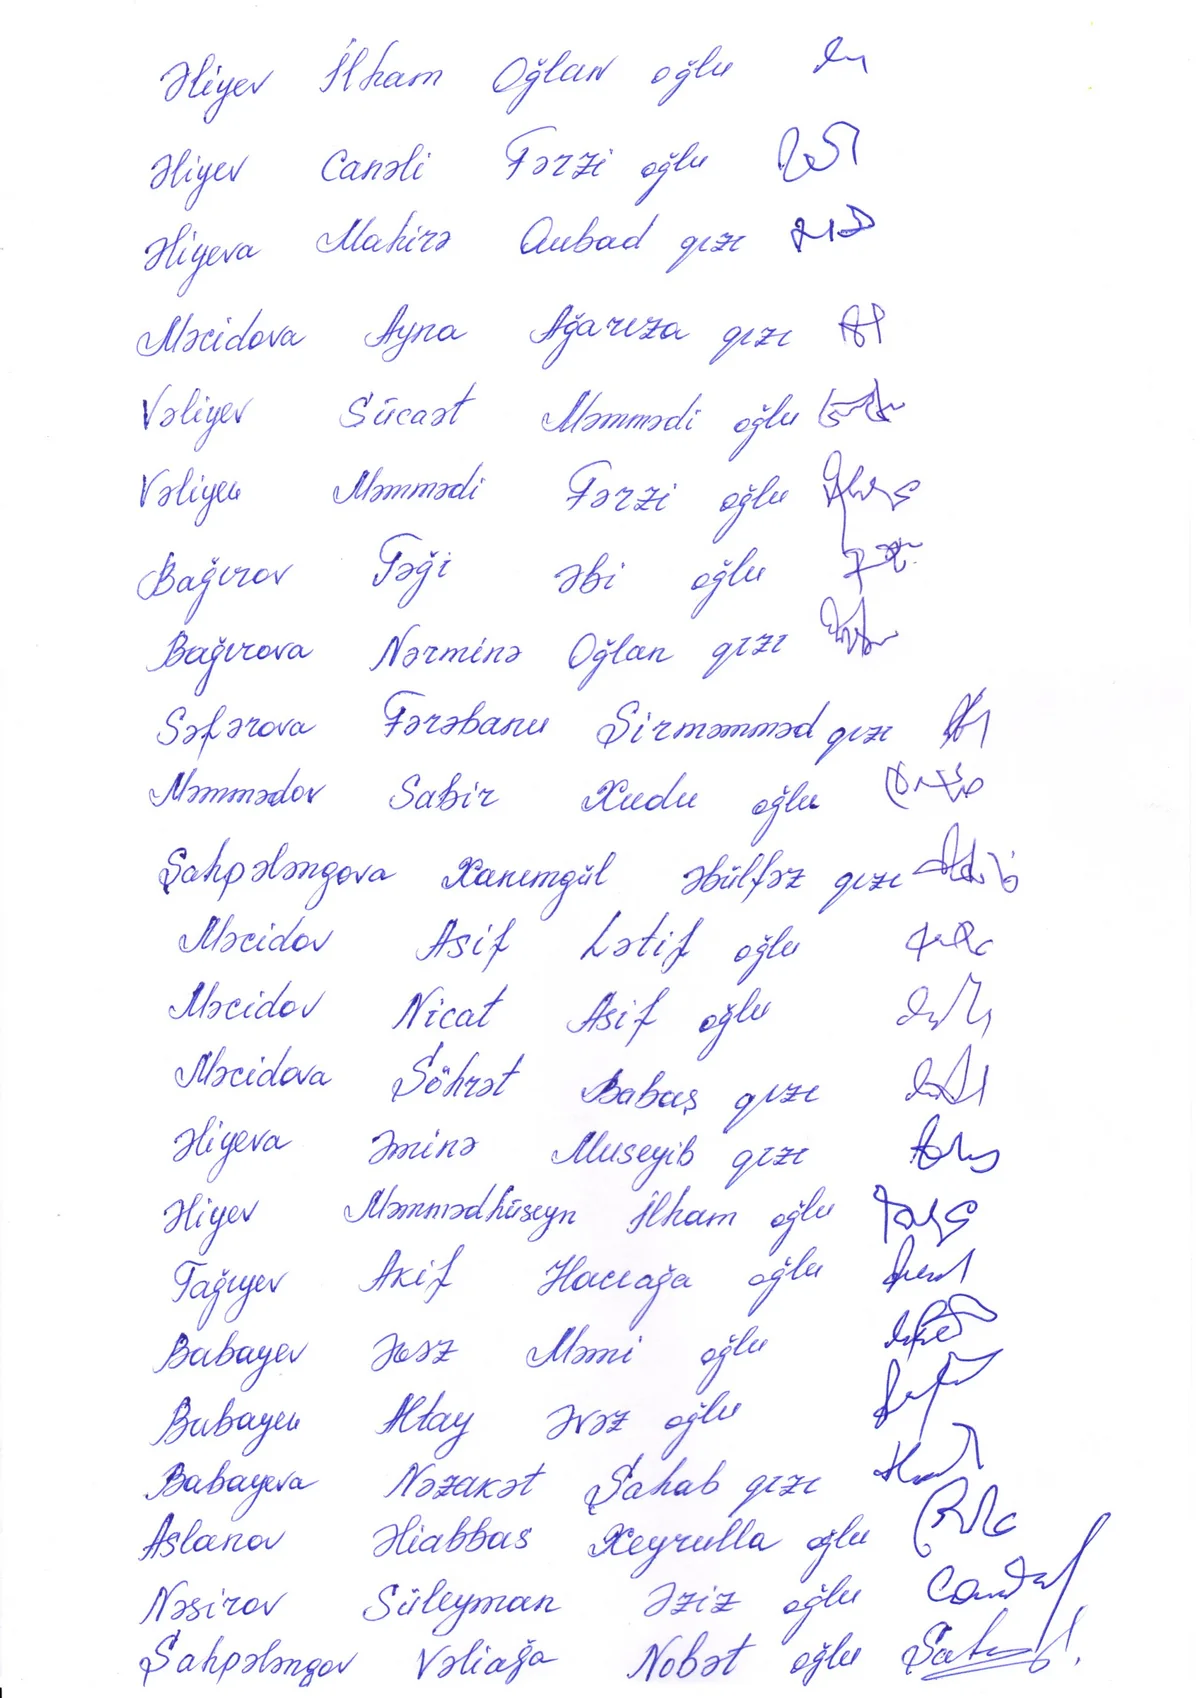 Əliyev İlham Oğlan oğlu
Əliyev Canəli Fərzi oğlu
Əliyeva Mahirə Qubad qızı
Məcidova Ayna Ağarıza qızı
Vəliyev Sücaət Məmmədi oğlu
Vəliyev Məmmədi Fərzi oğlu
Bağırov Tağı Əbi oğlu
Bağırova Nərminə Oğlan qızı
Səfərova Fərəbanu Şirməmməd qızı
Məmmədov Sabir Xudu oğlu
Şahpələngova Xanımgül Əbülfəz qızı
Məcidov Asif Lətif oğlu
Məcidov Nicat Asif oğlu
Məcidova Şöhrət Babaş qızı
Əliyeva Əminə Museyib qızı
Əliyev Məmmədhüseyn İlham oğlu
Tağıyev Akif Hacıağa oğlu
Babayev Əvəz Məmi oğlu
Babayev Altay Əvəz oğlu
Babayeva Nəzakət Şahab qızı
Aslanov Əliabbas Xeyrulla oğlu
Nəsirov Süleyman Əziz oğlu
Şahpələngov Vəliağa Nobət oğlu